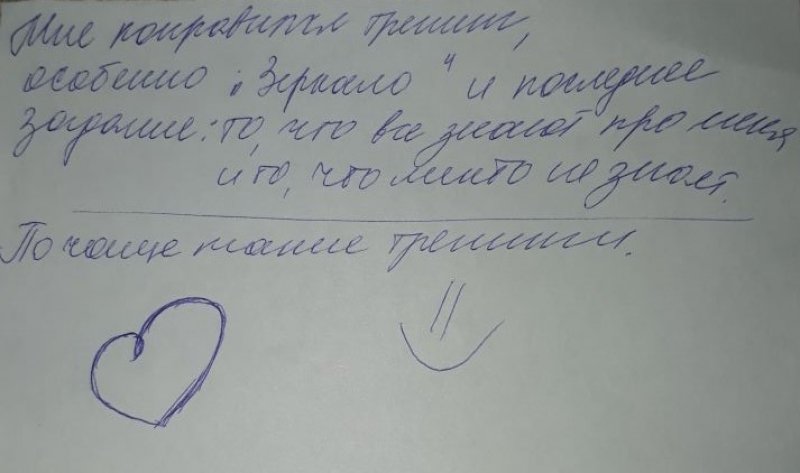 Мне понравился тренинг,
особенно „Зеркало“ и последнее
задание: то, что все знают про меня
и то, что никто не знает.
По чаще такие тренинги.